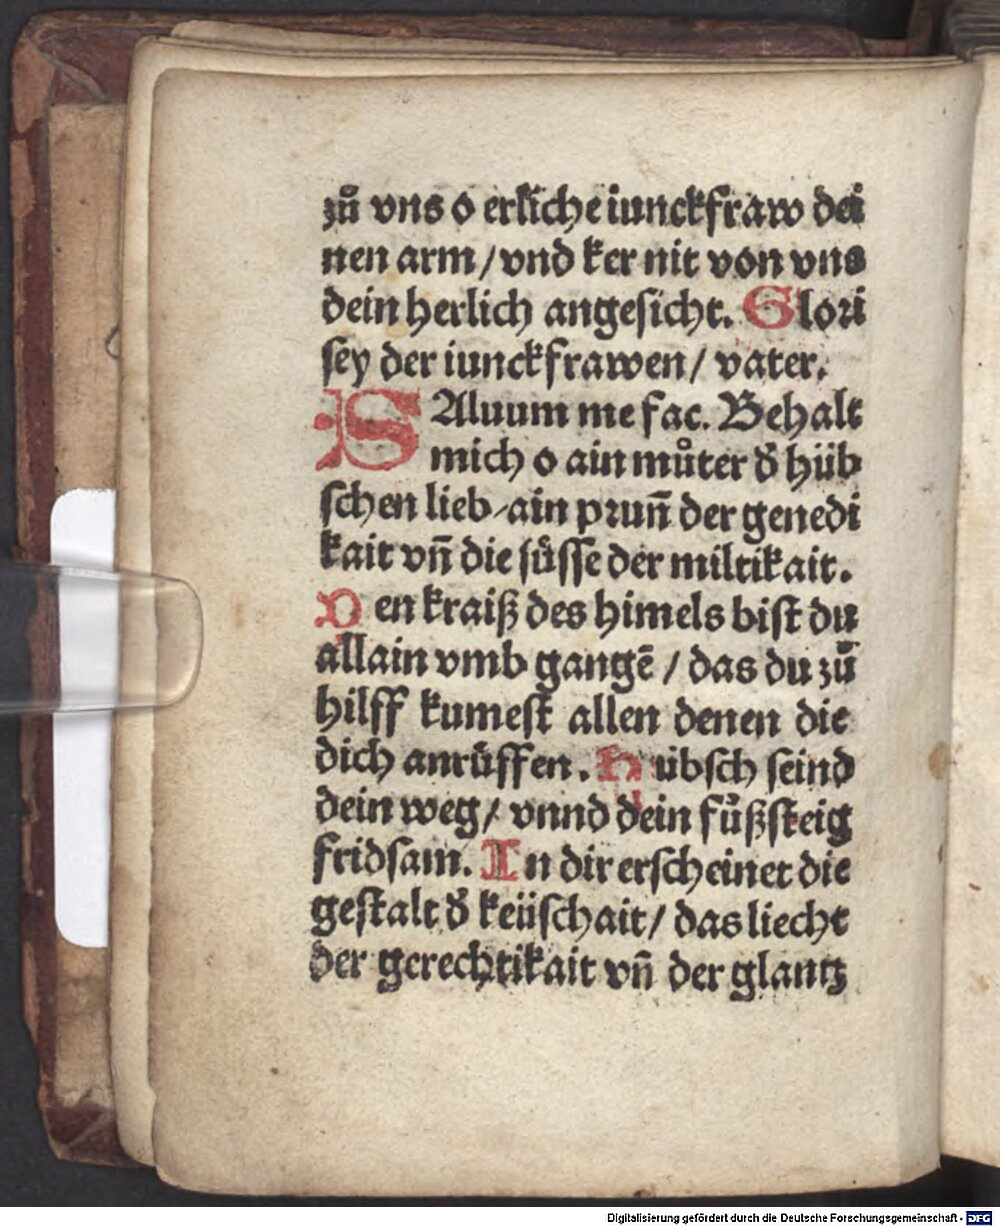 zů vns o erliche iunckfraw dei
nen arm / vnd ker nit von vns
dein herlich angesicht. Glori
sey der iunckfrawen / vater.
SAluum me fac. Behalt
mich o ain můter d̕ hüb
schen lieb / ain prun̄ der genedi
kait vn̄ die süsse der miltikait.
Den kraiß des himels bist du
allain vmb gangē / das du zů
hilff kumest allen denen die
dich anrůffen. Hübsch seind
dein weg / vnnd dein fůßsteig
fridsam. In dir erscheinet die
gestalt d̕ keüschait / das liecht
der gerechtikait vn̄ der glantz
Digitalisierung gefördert durch die Deutsche Forschungsgemeinschaft - DFG